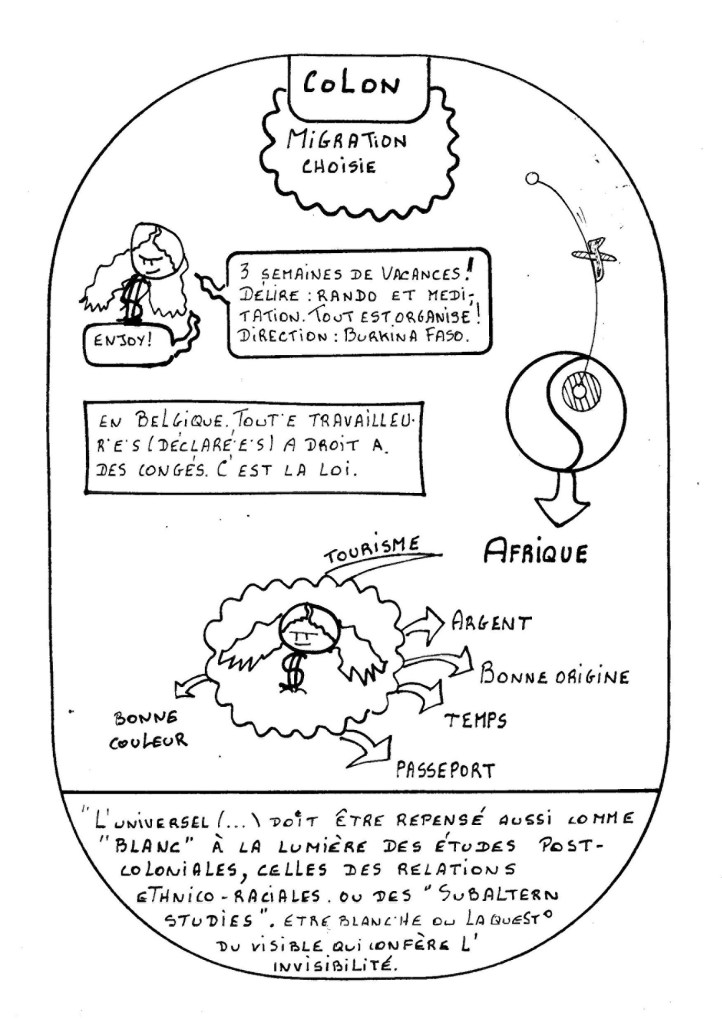 COLON
MIGRATION
CHOISIE
3 SEMAINES DE VACANCES!
DÉLIRE : RANDO ET MEDI-
TATION. TOUT EST ORGANISE!
DIRECTION : BURKINA FASO.
ENJOY!
EN BELGIQUE. TOUT·E TRAVAILLEU·
R·E·S (DÉCLARÉ·E·S) A DROIT A
DES CONGÉS. C'EST LA LOI.
AFRIQUE
TOURISME
ARGENT
BONNE ORIGINE
TEMPS
PASSEPORT
BONNE
COULEUR
"L'UNIVERSEL (...) DOIT ÊTRE REPENSÉ AUSSI COMME
"BLANC" À LA LUMIÈRE DES ÉTUDES POST-
COLONIALES, CELLES DES RELATIONS
ETHNICO-RACIALES. OU DES "SUBALTERN
STUDIES". ETRE BLANC·HE OU LA QUEST°
DU VISIBLE QUI CONFÈRE L'
INVISIBILITÉ.